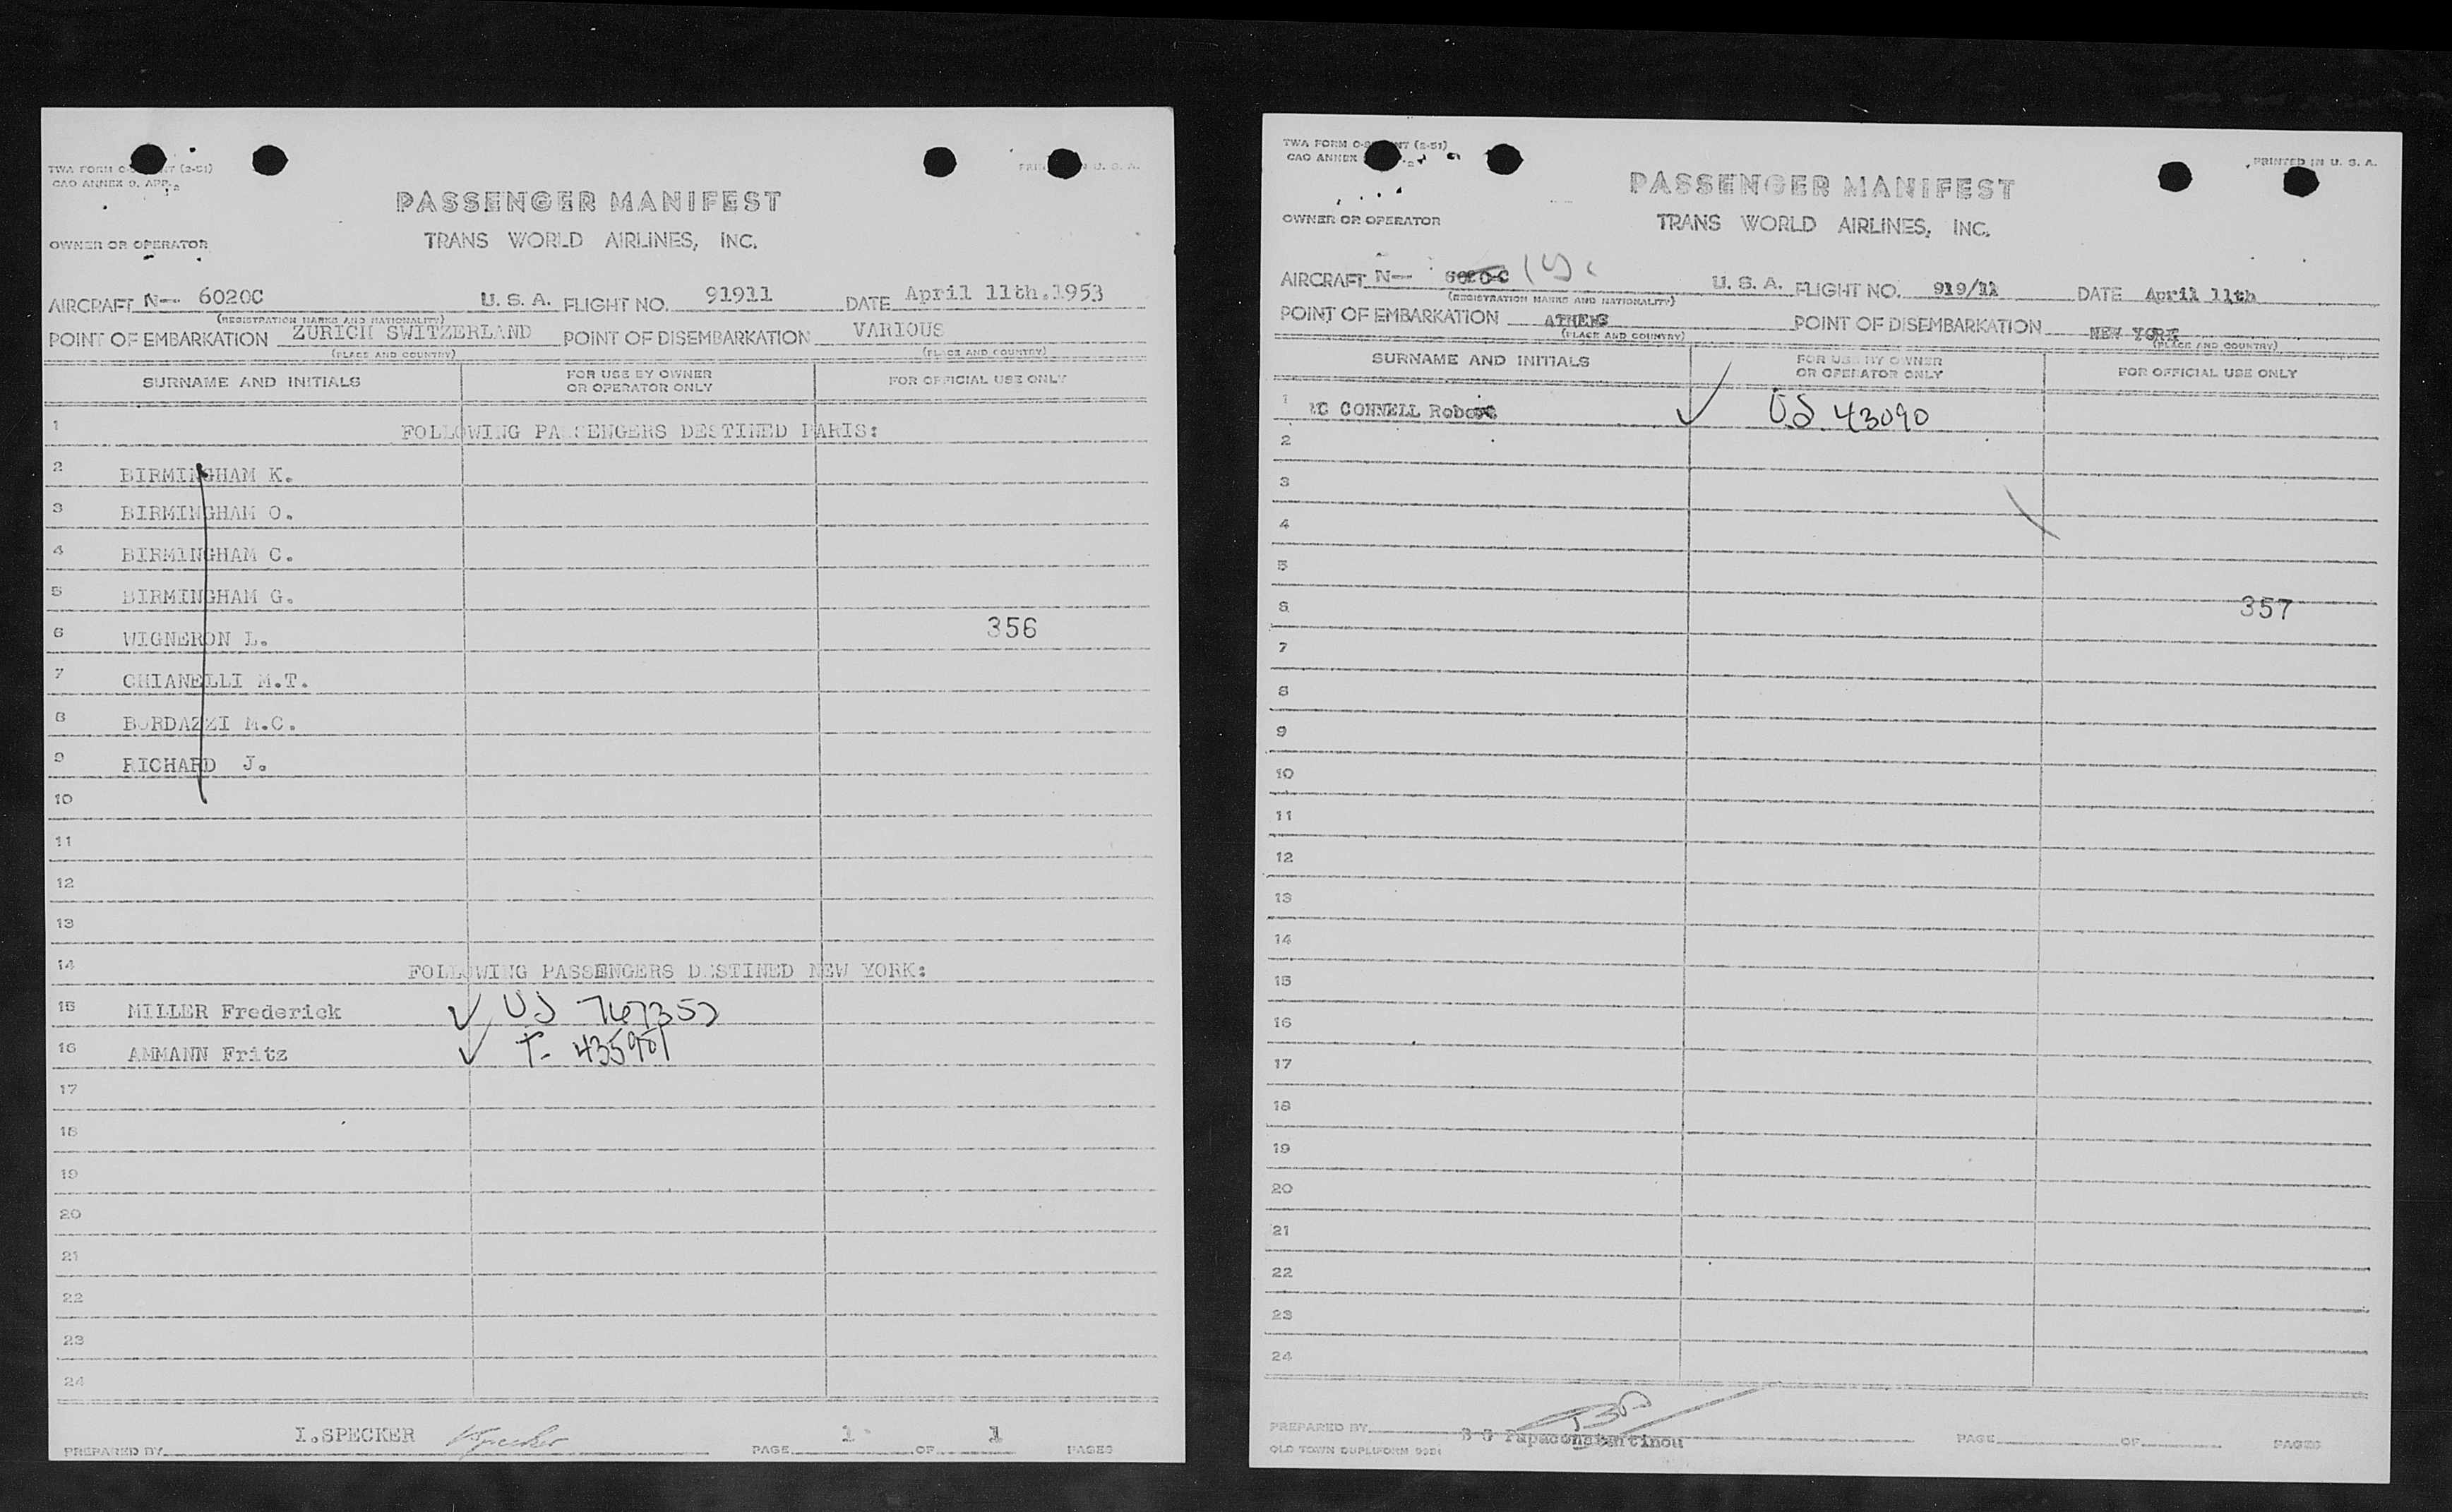 TWA FORM O-
NT (2-51)
CAO ANNEX 9, APP.
U. S. A.
PASSENGER MANIFEST
OWNER OR OPERATOR
TRANS WORLD AIRLINES, INC.
AIRCRAFT N-- 6020C U. S. A. FLIGHT NO. 91911 DATE April 11th.1953
(REGISTRATION MARKS AND NATIONALITY)
POINT OF EMBARKATION ZURICH SWITZERLAND POINT OF DISEMBARKATION VARIOUS
(PLACE AND COUNTRY) (PLACE AND COUNTRY)
SURNAME AND INITIALS FOR USE BY OWNER OR OPERATOR ONLY FOR OFFICIAL USE ONLY
1 FOLLOWING PASSENGERS DESTINED PARIS:
2 BIRMINGHAM K.
3 BIRMINGHAM O.
4 BIRMINGHAM C.
5 BIRMINGHAM G.
6 WIGNERON L. 356
7 CHIANELLI M.T.
8 BORDAZZI M.C.
9 RICHARD J.
10
11
12
13
14 FOLLOWING PASSENGERS DESTINED NEW YORK:
15 MILLER Frederick ✓ US
16 AMMANN Fritz ✓ T-
17
18
19
20
21
22
23
24
PREPARED BY I.SPECKER I.Specker PAGE 1 OF 1 PAGES
TWA FORM O-
NT (2-51)
CAO ANNEX
PRINTED IN U. S. A.
PASSENGER MANIFEST
OWNER OR OPERATOR
TRANS WORLD AIRLINES, INC.
AIRCRAFT N-- U. S. A. FLIGHT NO. 919/11 DATE April 11th
(REGISTRATION MARKS AND NATIONALITY)
POINT OF EMBARKATION ATHENS POINT OF DISEMBARKATION NEW YORK
(PLACE AND COUNTRY) (PLACE AND COUNTRY)
SURNAME AND INITIALS FOR USE BY OWNER OR OPERATOR ONLY FOR OFFICIAL USE ONLY
1 MC CONNELL Robert ✓ US 43090
2
3
4
5
6 357
7
8
9
10
11
12
13
14
15
16
17
18
19
20
21
22
23
24
PREPARED BY Papaconstantinou PAGE OF PAGES
OLD TOWN DUPLIFORM